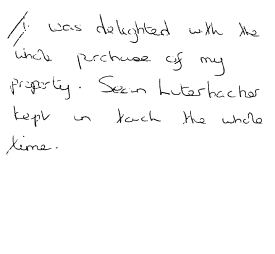 I was delighted with the
whole purchase of my
property. Sean Luterbacher
kept in touch the whole
time.